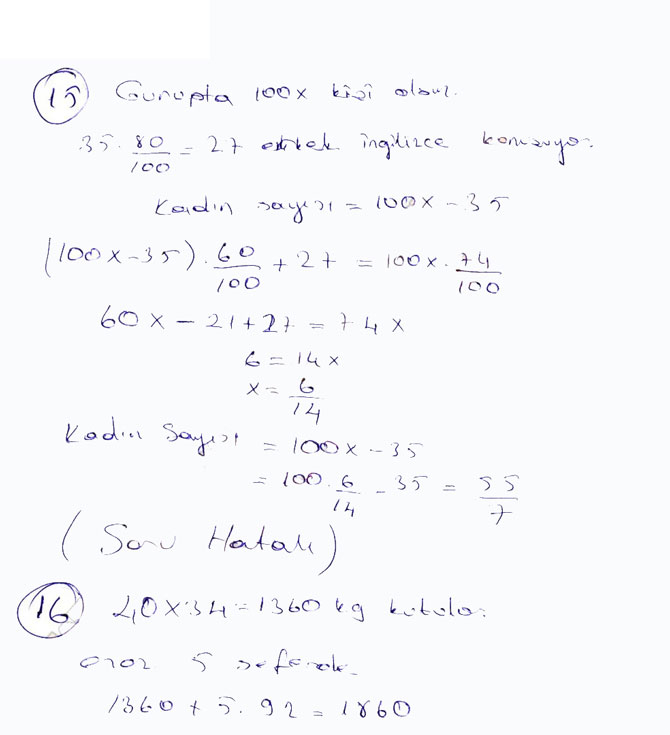 15 Gurupta 100x kişi olsun.
35 . 80/100 = 27 erkek ingilizce konuşuyor.
Kadın sayısı = 100x - 35
(100x - 35) . 60/100 + 27 = 100x . 74/100
60x - 21 + 27 = 74x
6 = 14x
x = 6/14
Kadın Sayısı = 100x - 35
= 100 . 6/14 - 35 = 55/7
(Soru Hatalı)
16 40 x 34 = 1360 kg kutular
5 seferde
1360 + 5 . 92 = 1860